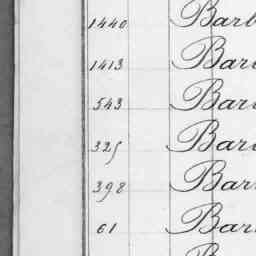 1440 Barb
1413 Bar
543 Bar
325 Bar
398 Bar
61 Bar